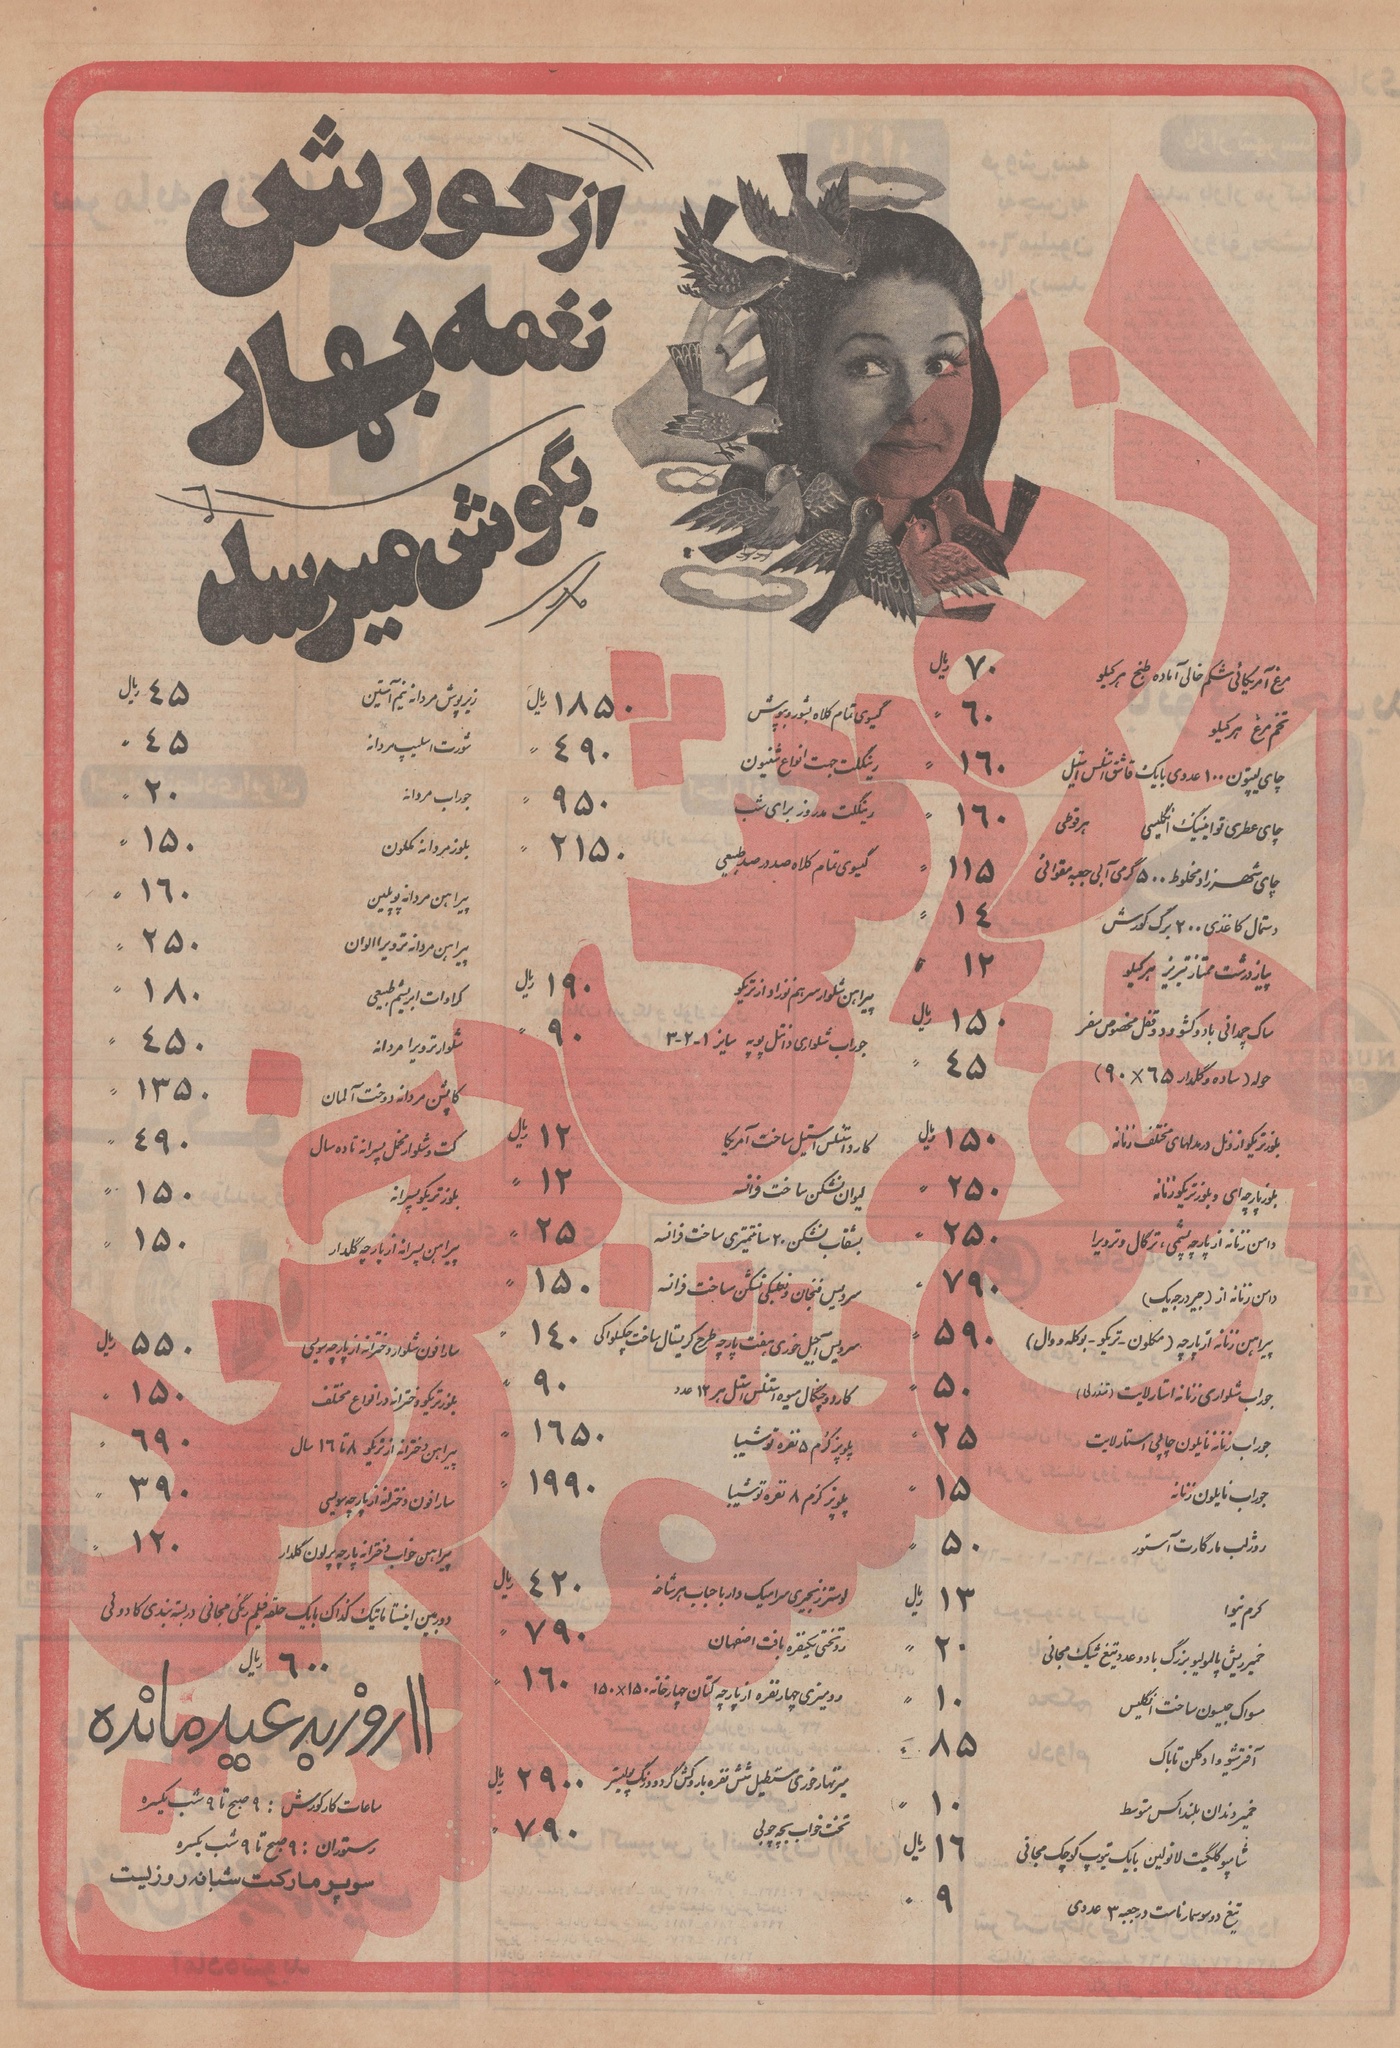 از کورش
نغمه بهار
بگوش میرسد
مرغ آمریکائی شکم خالی آماده طبخ هر کیلو ۷۰ ریال
تخم مرغ هر کیلو ۶۰ "
چای لیپتون ۱۰۰ عددی با یک قاشق استنلس استیل ۱۶۰ "
چای عطری تواینینگ انگلیسی هر قوطی ۱۶۰ "
چای شهرزاد مخلوط ۵۰۰ گرمی آبی جعبه مقوائی ۱۱۵ "
دستمال کاغذی ۲۰۰ برگ کورش ۱۴ "
پیاز درشت ممتاز تبریز هر کیلو ۱۲ "
ساک چمدانی با دو کشو و دو قفل مخصوص سفر ۱۵۰ ریال
حوله (ساده و گلدار ۶۵×۹۰) ۴۵ "
بلوز تریکو از ونل در مدلهای مختلف زنانه ۱۵۰ ریال
بلوز پارچه‌ای و بلوز تریکو زنانه ۲۵۰ "
دامن زنانه از پارچه پشمی، ترگال و ترویرا ۲۵۰ "
دامن زنانه از (جیر درجه یک) ۷۹۰ "
پیراهن زنانه از پارچه (نکلون - تریکو - بوکله و وال) ۵۹۰ "
جوراب شلواری زنانه استارلایت ۵۰ "
جوراب زنانه نایلون چاپی استارلایت ۲۵ "
جوراب نایلون زنانه ۱۵ "
روژلب مارگارت آستور ۵۰ "
کرم نیوا ۱۳ ریال
خمیر ریش پالمولیو بزرگ با دو عدد تیغ شیک مجانی ۲۰ "
مسواک جیبسون ساخت انگلیس ۱۰ "
آفترشیو و ادکلن تاباک ۸۵ "
خمیر دندان بلنداکس متوسط ۱۰ "
شامپو کلگیت لانولین با یک تیوپ کوچک مجانی ۱۶ ریال
تیغ دو سوسمار ناست در جعبه ۳ عددی ۹ "
گیسوی تمام کلاه بشور و بپوش ۱۸۵۰ ریال
رینگلت جهت انواع شنیون ۴۹۰ "
رینگلت مد روز برای شب ۹۵۰ "
گیسوی تمام کلاه صد در صد طبیعی ۲۱۵۰ "
پیراهن شلوار سر هم نوزاد از تریکو ۱۹۰ ریال
جوراب شلواری دانتل پوپه سایز ۱-۲-۳ ۹۰ "
کارد استنلس استیل ساخت آمریکا ۱۲ ریال
لیوان نشکن ساخت فرانسه ۱۲ "
بشقاب نشکن ۲۰ سانتیمتری ساخت فرانسه ۲۵ "
سرویس فنجان و نعلبکی نشکن ساخت فرانسه ۱۵۰ "
سرویس آجیل خوری هفت پارچه طرح کریستال ساخت چکسلواکی ۱۴۰ "
کارد و چنگال میوه استنلس استیل هر ۱۲ عدد ۹۰ "
پلوپز کرم ۵ نفره توشیبا ۱۶۵۰ "
پلوپز کرم ۸ نفره توشیبا ۱۹۹۰ "
لوستر زنجیری سرامیک دار با حباب هر شاخه ۴۲۰ ریال
روتختی یکنفره بافت اصفهان ۷۹۰ "
رومیزی چهار نفره از پارچه کتان چهارخانه ۱۵۰×۱۵۰ ۱۶۰ "
میز نهارخوری مستطیل شش نفره با روکش گردو و رنگ پلیستر ۲۹۰۰ ریال
تخت خواب بچه چوبی ۷۹۰ "
زیرپوش مردانه نیم آستین ۴۵ ریال
شورت اسلیپ مردانه ۴۵ "
جوراب مردانه ۲۰ "
بلوز مردانه نکلون ۱۵۰ "
پیراهن مردانه پوپلین ۱۶۰ "
پیراهن مردانه ترویرا الوان ۲۵۰ "
کراوات ابریشم طبیعی ۱۸۰ "
شلوار ترویرا مردانه ۴۵۰ "
کاپشن مردانه دوخت آلمان ۱۳۵۰ "
کت و شلوار مخمل پسرانه تا ده سال ۴۹۰ "
بلوز تریکو پسرانه ۱۵۰ "
پیراهن پسرانه از پارچه گلدار ۱۵۰ "
سارافون شلوار دخترانه از پارچه سویسی ۵۵۰ ریال
بلوز تریکو دخترانه در انواع مختلف ۱۵۰ "
پیراهن دخترانه از تریکو ۸ تا ۱۶ سال ۶۹۰ "
سارافون دخترانه از پارچه سویسی ۳۹۰ "
پیراهن خواب دخترانه پارچه پرلون گلدار ۱۲۰ "
دوربین اینستاماتیک کداک با یک حلقه فیلم رنگی مجانی در بسته بندی کادوئی
۶۰۰ ریال
۱۱ روز به عید مانده
ساعات کار کورش : ۹ صبح تا ۹ شب یکسره
رستوران : ۹ صبح تا ۹ شب یکسره
سوپر مارکت شبانه روزیست